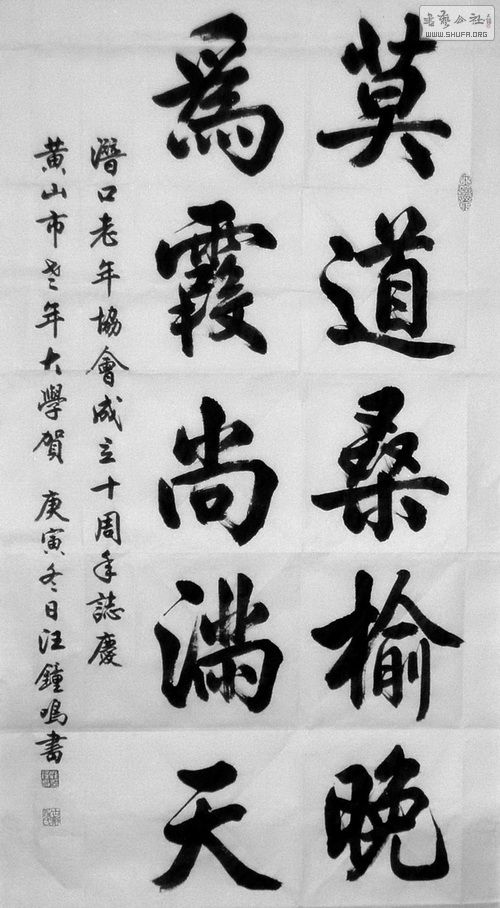 莫道桑榆晚
為霞尚滿天
潛口老年協會成立十周年誌慶
黄山市老年大學賀 庚寅冬日汪鐘鳴書
書藝公社
WWW.SHUFA.ORG